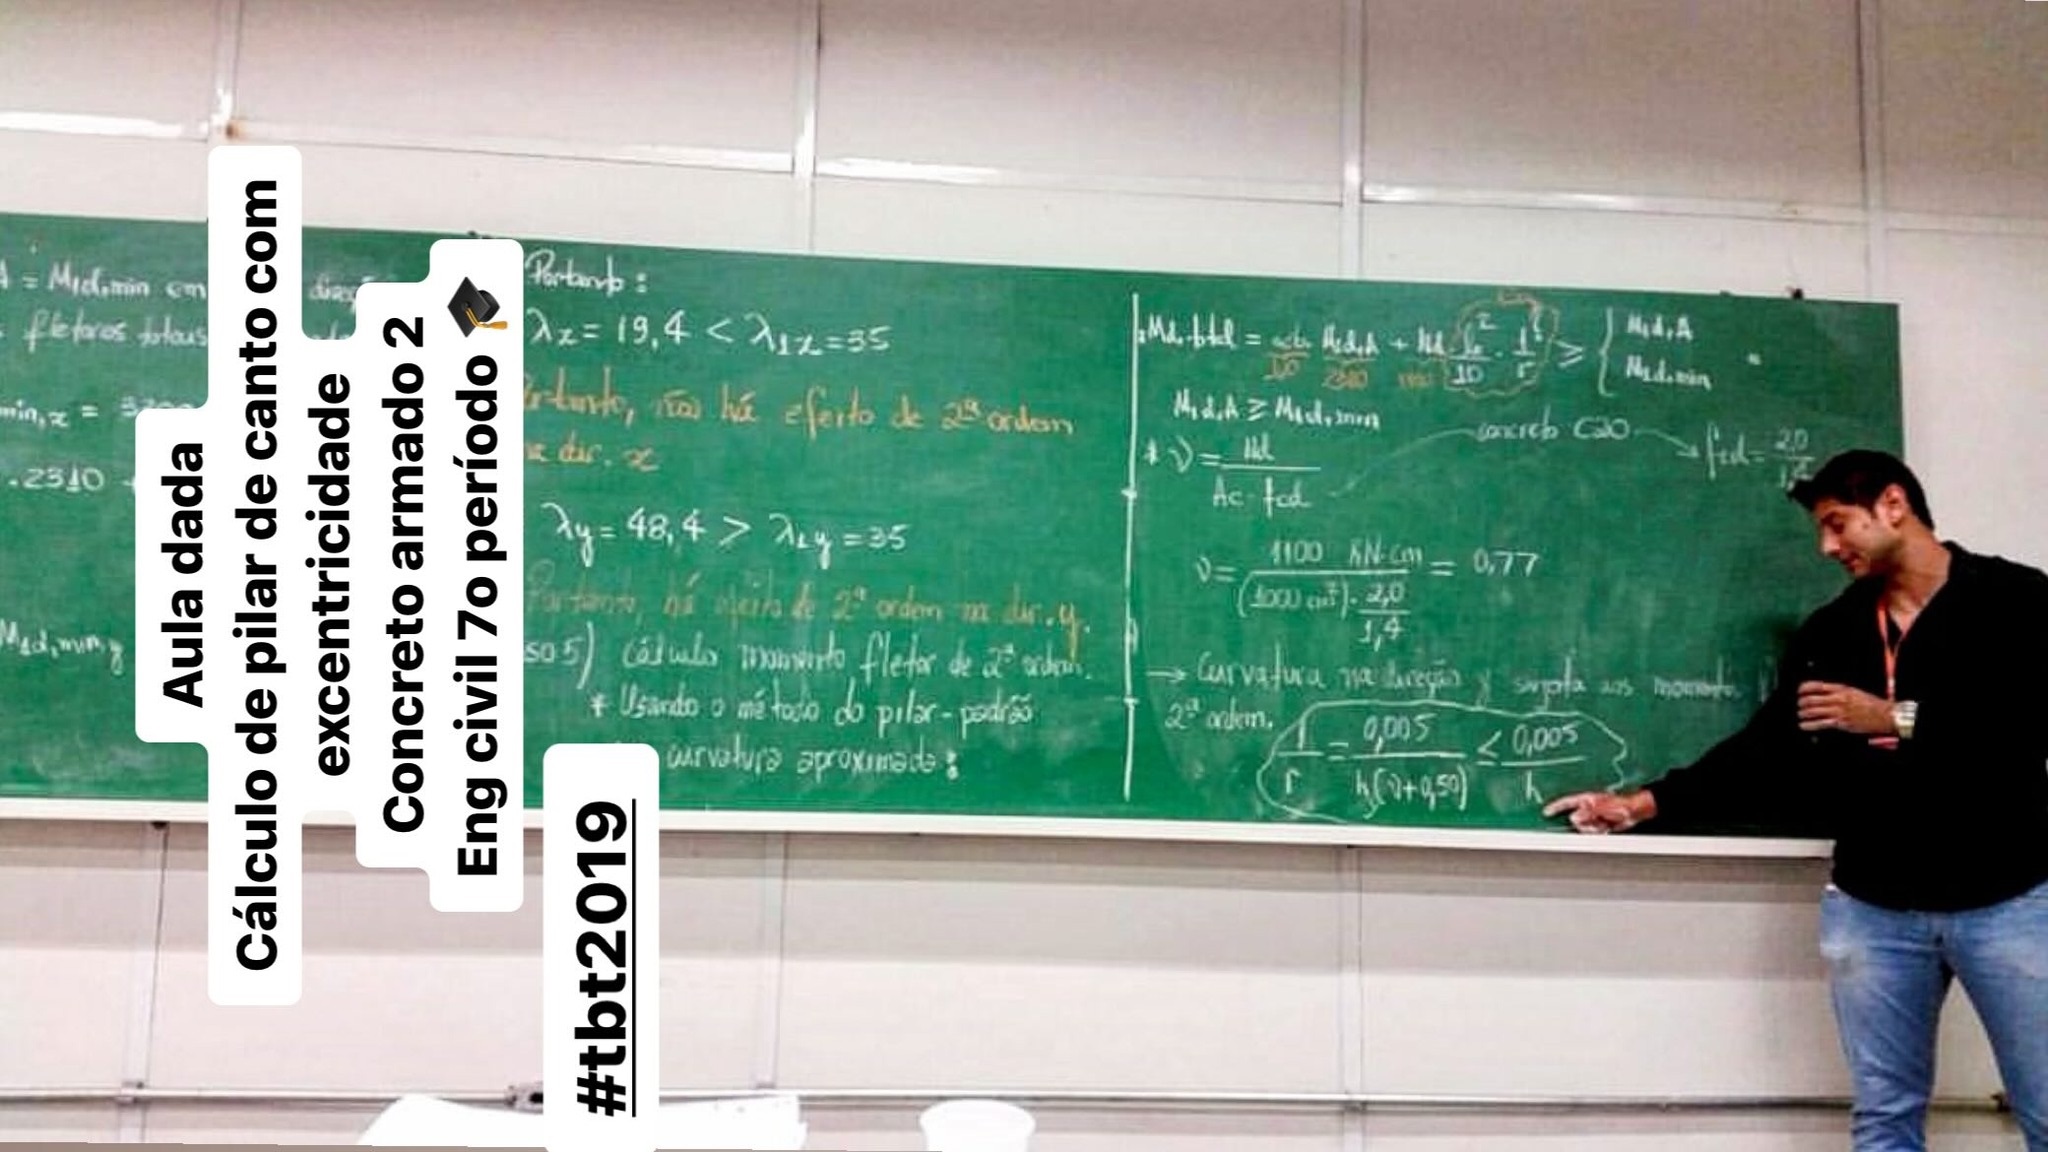 Aula dada
Cálculo de pilar de canto com
excentricidade
Concreto armado 2
Eng civil 7o período 🎓
#tbt2019
= M1d,min em
fletores totais
min,x =
.2310
M1d,min,y
Portanto:
λx = 19,4 < λ1x = 35
Portanto, não há efeito de 2ª ordem
na dir. x
λy = 48,4 > λ1y = 35
Portanto, há efeito de 2ª ordem na dir. y.
so 5) cálculo momento fletor de 2ª ordem.
* Usando o método do pilar-padrão
curvatura aproximada:
Md,total = M1d,A + Nd · le²/10 · 1/r ≥ { M1d,A
M1d,min
M1d,A ≥ M1d,min
* ν = Nd / Ac · fcd
concreto C20 → fcd = 2,0 / 1,4
ν = 1100 KN·cm / (1000 cm²) · 2,0/1,4 = 0,77
→ Curvatura na direção y sujeita aos momentos
2ª ordem.
1/r = 0,005 / h(ν+0,50) ≤ 0,005 / h